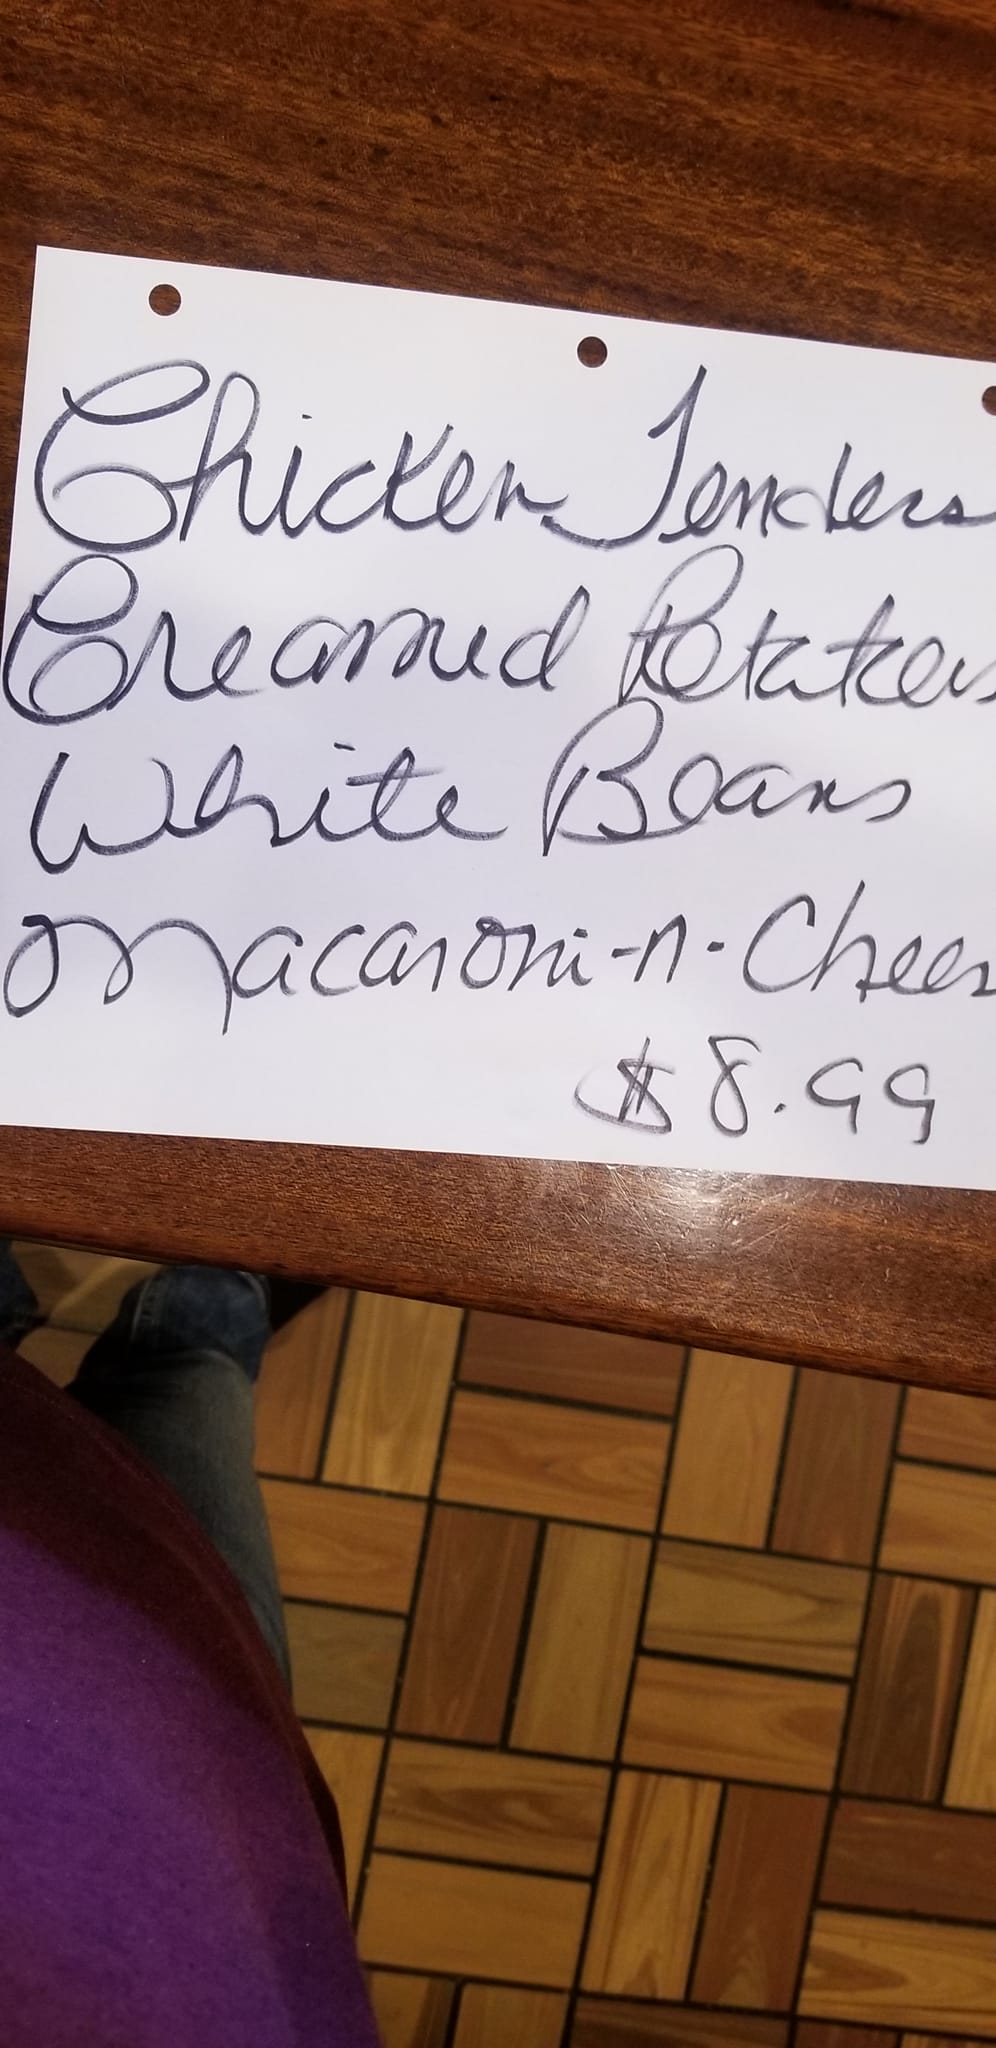 Chicken Tenders
Creamed Potatoes
White Beans
Macaroni-n-Chees
$8.99